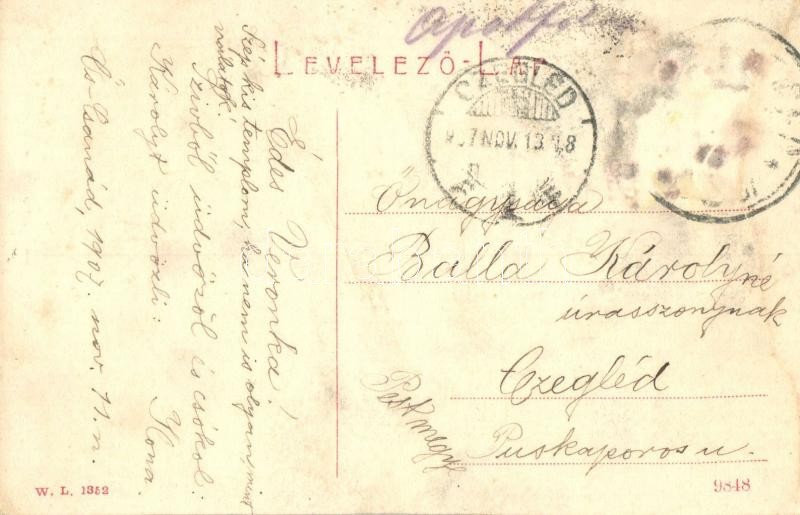 LEVELEZŐ-LAP
CZEGLÉD
907 NOV. 13
Édes Veronka!
Szép kis templom, ha nem is olyan, mint
nálatok!
Szivből üdvözöl és csókol:
Ilona.
Károlyt üdvözli:
Cs-Csanád, 1907. nov. 11.n.
Őnagysága
Balla Károlyné
úrasszonynak
Czegléd
Pest megye
Puskaporos u.
W. L. 1352
9848